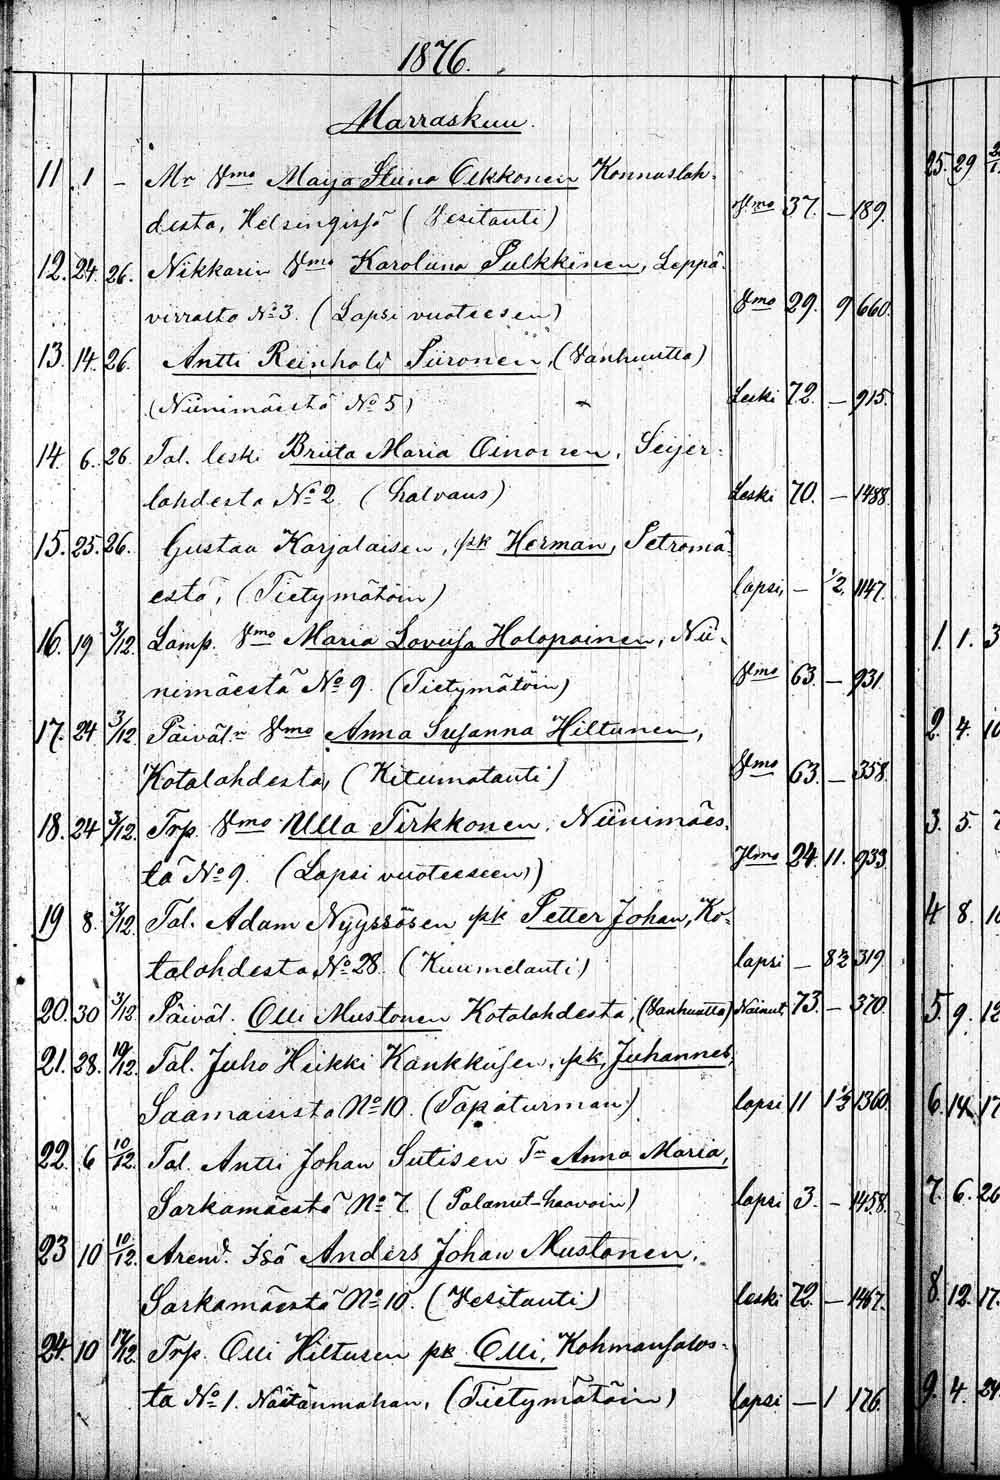 1876.
Marraskuu.
11 1 – Mr Vmo Maija Stiina Okkonen Konnuslah-
desta, Helsingissä (Vesitauti) Vmo 37. – 189.
12. 24. 26. Nikkarin Vmo Karoliina Pulkkinen, Leppä-
virrasta No 3. (Lapsi vuoteesen) Vmo 29. 9 660.
13. 14. 26. Antti Reinhold Piironen, (Vanhuutta)
(Niinimäestä No 5) Leski 72. – 915.
14. 6. 26. Tal. leski Briita Maria Oinonen, Seijer-
lahdesta No 2 (halvaus) Leski 70. – 1488.
15. 25. 26. Gustaa Karjalaisen, pk Herman, Petromä-
estä, (Tietymätöin) lapsi, – 1/2, 1147.
16. 19 3/12. Lamp. Vmo Maria Lovisa Holopainen, Nii-
nimäestä No 9. (Tietymätöin) Vmo 63. – 931.
17. 24 3/12 Päiväl:n Vmo Anna Susanna Hiltunen,
Kotalahdesta, (Kitumatauti) Vmo 63. – 358.
18. 24 3/12. Trp. Vmo Ulla Tirkkonen, Niinimäes-
tä No 9. (Lapsi vuoteeseen) Vmo 24. 11. 933.
19 8. 3/12. Tal. Adam Nyyssösen pk Petter Johan, Ko-
talahdesta No 28. (Kuumetauti) lapsi – 8 1/2 319.
20. 30 3/12. Päiväl. Olli Mustonen Kotalahdesta, (Vanhuutta) Nainut, 73. – 370.
21. 28. 10/12. Tal. Juho Heikki Kankkusen, pk, Juhannes,
Saamaisista No 10. (Tapaturman) lapsi 11 1 1/2 1360.
22. 6 10/12. Tal. Antti Johan Sutisen Tr Anna Maria,
Sarkamäestä No 7. (Palanut haavoin) lapsi 3. – 1458.
23 10 10/12. Arend. Isä Anders Johan Mustonen,
Sarkamäestä No 10. (Vesitauti) leski 72. – 1467.
24. 10 17/12. Trp. Olli Hiltusen pk Olli, Kohmansalos-
ta No 1. Näätänmahan, (Tietymätöin) lapsi – 1 176.
25. 29
1. 1. 3
2. 4. 10
3. 5.
4 8. 10
5. 9. 12
6. 14. 17
7. 6. 26
8. 12. 17.
9. 4. 24